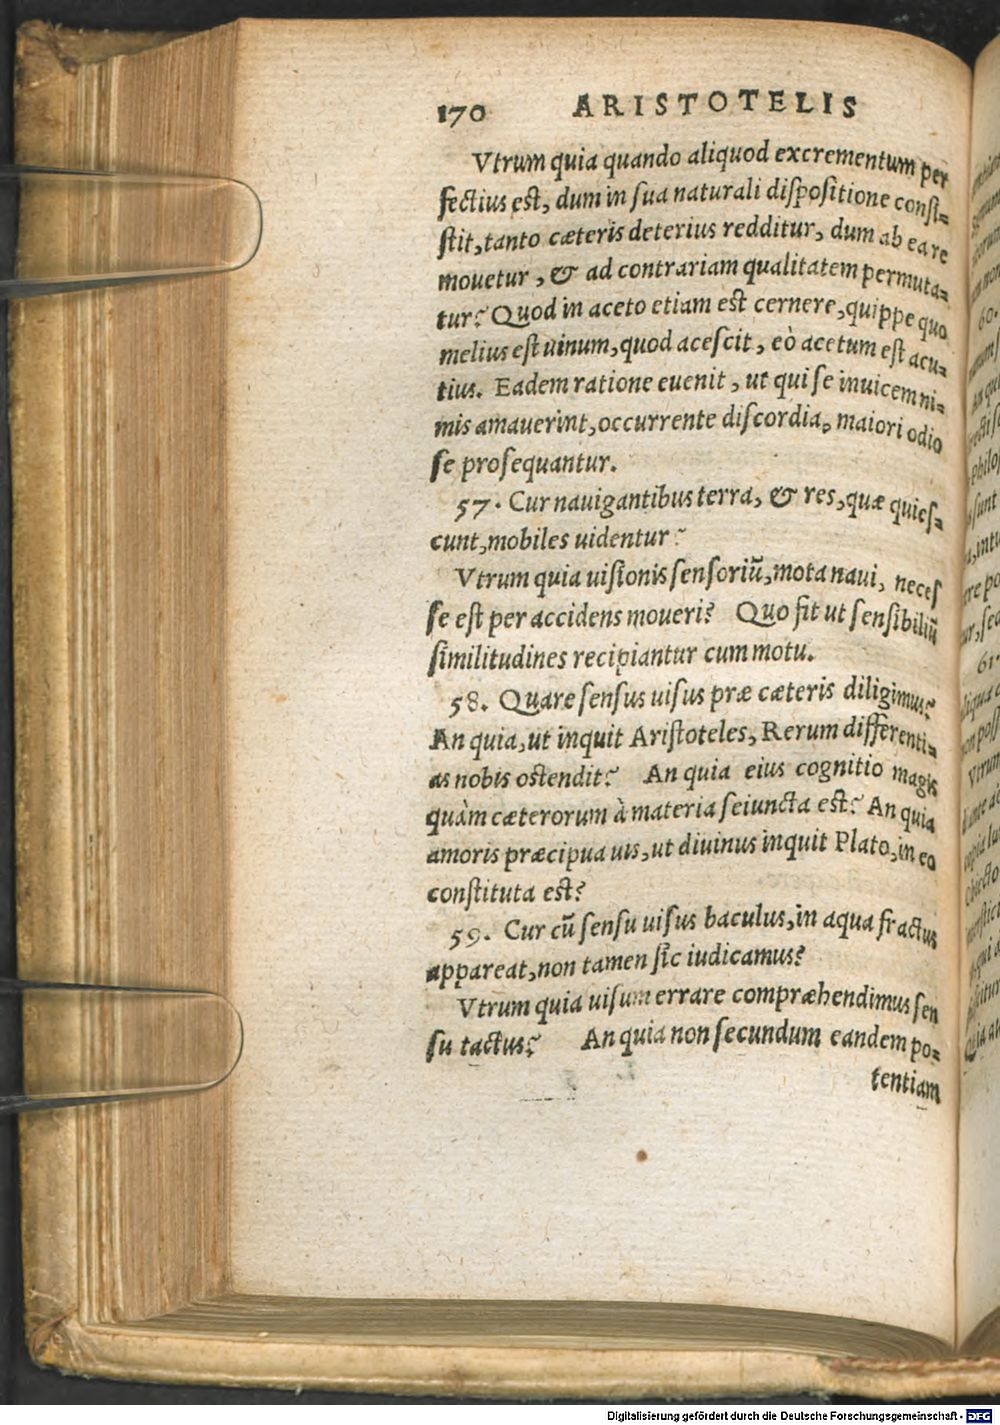 170 ARISTOTELIS
Vtrum quia quando aliquod excrementum per
fectius est, dum in sua naturali dispositione consi-
stit, tanto cæteris deterius redditur, dum ab ea re
mouetur, & ad contrariam qualitatem permuta-
tur? Quod in aceto etiam est cernere, quippe quo
melius est uinum, quod acescit, eò acetum est acu-
tius. Eadem ratione euenit, ut qui se inuicem ni-
mis amauerint, occurrente discordia, maiori odio
se prosequantur.
57. Cur nauigantibus terra, & res, quæ quies-
cunt, mobiles uidentur?
Vtrum quia uisionis sensoriū, mota naui, neces
se est per accidens moueri? Quo fit ut sensibiliū
similitudines recipiantur cum motu.
58. Quare sensus uisus præ cæteris diligimus?
An quia, ut inquit Aristoteles, Rerum differenti-
as nobis ostendit? An quia eius cognitio magis
quàm cæterorum à materia seiuncta est? An quia
amoris præcipua uis, ut diuinus inquit Plato, in eo
constituta est?
59. Cur cū sensu uisus baculus, in aqua fractus
appareat, non tamen sic iudicamus?
Vtrum quia uisum errare compræhendimus sen
su tactus? An quia non secundum eandem po-
tentiam
60.
61.
Digitalisierung gefördert durch die Deutsche Forschungsgemeinschaft - DFG